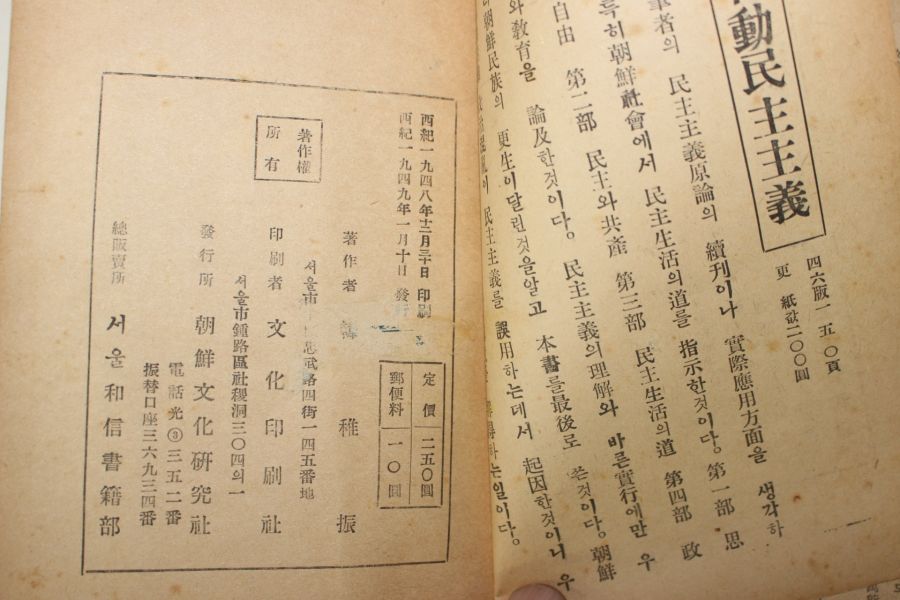 動民主主義
四六版一五〇頁
更紙값二〇〇圓
筆者의 民主主義原論의 續刊이나 實際應用方面을 생각하
特히 朝鮮社會에서 民主生活의 道를 指示한것이다。第一部 思
自由 第二部 民主와共產 第三部 民主生活의 道 第四部 政
와敎育을 論及한것이다。民主主義의理解와 바른實行에만 우
朝鮮民族의 更生이달린것을알고 本書를最後로 쓴것이다。朝鮮
民主主義를 誤用하는데서 起因한것이니 우
하는일이다。
西紀一九四八年十二月三十日 印刷
西紀一九四九年一月十日 發行
著作權
所有
定價 二五〇圓
郵便料 一〇圓
著作者 稚振
서울市忠武路四街一四五番地
印刷者 文化印刷社
서울市鍾路區社稷洞三〇四의一
發行所 朝鮮文化硏究社
電話光③三五二番
振替口座三六九三四番
總販賣所 서울和信書籍部